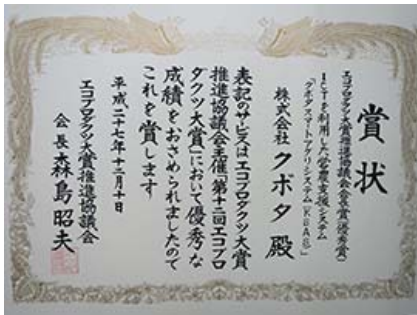 賞状
エコプロダクツ大賞推進協議会会長賞(優秀賞)
ICTを利用した営農支援システム
「クボタスマートアグリシステム(KSAS)」
株式会社 クボタ 殿
表記のサービスはエコプロダクツ大賞
推進協議会主催「第十二回エコプロ
ダクツ大賞」において優秀な
成績をおさめられましたので
これを賞します
平成二十七年十二月十日
エコプロダクツ大賞推進協議会
会長 森島昭夫